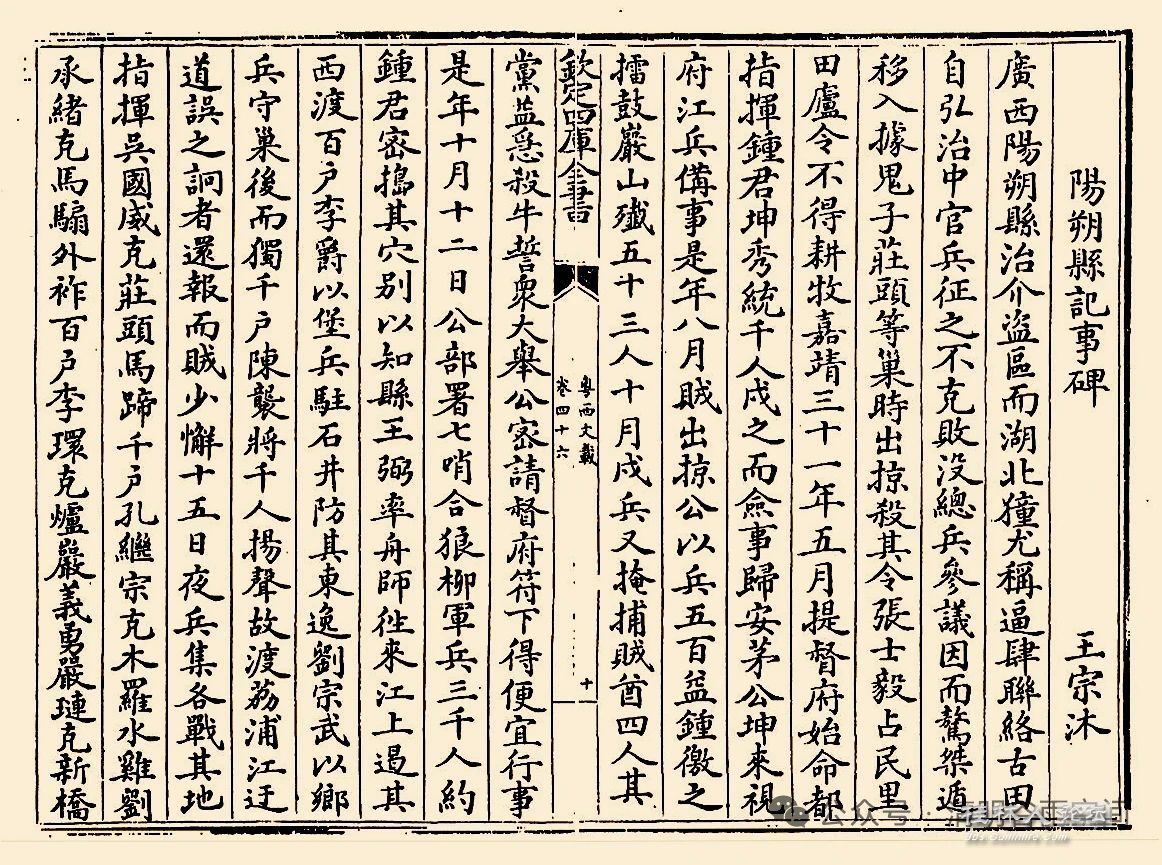 陽朔縣記事碑 王宗沐
廣西陽朔縣治介盜區而湖北獞尤稱逼肆聯絡古田
自弘治中官兵征之不克敗没總兵參議因而驁桀遁
移入據鬼子莊頭等巢時出掠殺其令張士毅占民里
田廬令不得耕牧嘉靖三十一年五月提督府始命都
指揮鍾君坤秀統千人戍之而僉事歸安茅公坤來視
府江兵備事是年八月賊出掠公以兵五百益鍾徼之
擂鼓巖山殱五十三人十月戍兵又掩捕賊酋四人其
欽定四庫全書
粵西文載
卷四十六
十
黨益惎殺牛誓衆大舉公密請督府符下得便宜行事
是年十月十二日公部署七哨合狼柳軍兵三千人約
鍾君密搗其穴别以知縣王弼率舟師徃來江上遏其
西渡百户李爵以堡兵駐石井防其東逸劉宗武以鄉
兵守巢後而獨千户陳襲將千人揚聲故渡荔浦江迂
道誤之詗者還報而賊少懈十五日夜兵集各戰其地
指揮吳國威克莊頭馬蹄千户孔繼宗克木羅水雞劉
承緒克馬騸外祚百户李環克爐巖義勇嚴璉克新橋
公众号